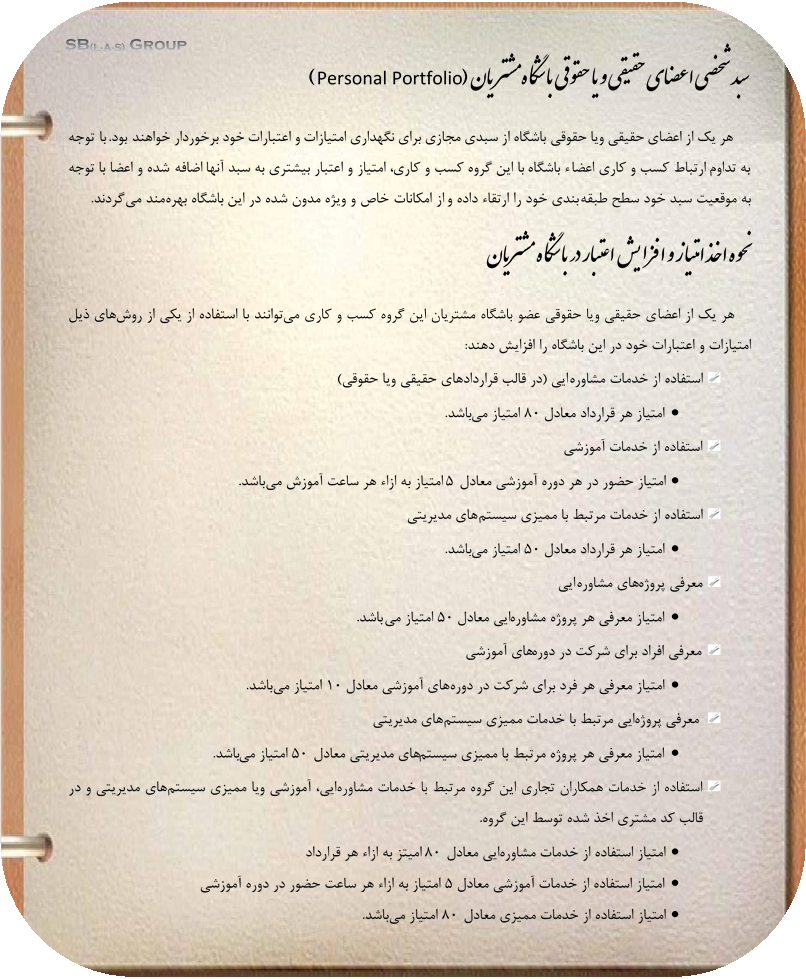 SB(L-A-S) GROUP
سبد شخصی اعضای حقیقی و یا حقوقی باشگاه مشتریان (Personal Portfolio)
هر یک از اعضای حقیقی ویا حقوقی باشگاه از سبدی مجازی برای نگهداری امتیازات و اعتبارات خود برخوردار خواهند بود. با توجه
به تداوم ارتباط کسب و کاری اعضاء باشگاه با این گروه کسب و کاری، امتیاز و اعتبار بیشتری به سبد آنها اضافه شده و اعضا با توجه
به موقعیت سبد خود سطح طبقه‌بندی خود را ارتقاء داده و از امکانات خاص و ویژه مدون شده در این باشگاه بهره‌مند می‌گردند.
نحوه اخذ امتیاز و افزایش اعتبار در باشگاه مشتریان
هر یک از اعضای حقیقی ویا حقوقی عضو باشگاه مشتریان این گروه کسب و کاری می‌توانند با استفاده از یکی از روش‌های ذیل
امتیازات و اعتبارات خود در این باشگاه را افزایش دهند:
استفاده از خدمات مشاوره‌ایی (در قالب قراردادهای حقیقی ویا حقوقی)
• امتیاز هر قرارداد معادل ۸۰ امتیاز می‌باشد.
استفاده از خدمات آموزشی
• امتیاز حضور در هر دوره آموزشی معادل ۵ امتیاز به ازاء هر ساعت آموزش می‌باشد.
استفاده از خدمات مرتبط با ممیزی سیستم‌های مدیریتی
• امتیاز هر قرارداد معادل ۵۰ امتیاز می‌باشد.
معرفی پروژه‌های مشاوره‌ایی
• امتیاز معرفی هر پروژه مشاوره‌ایی معادل ۵۰ امتیاز می‌باشد.
معرفی افراد برای شرکت در دوره‌های آموزشی
• امتیاز معرفی هر فرد برای شرکت در دوره‌های آموزشی معادل ۱۰ امتیاز می‌باشد.
معرفی پروژه‌ایی مرتبط با خدمات ممیزی سیستم‌های مدیریتی
• امتیاز معرفی هر پروژه مرتبط با ممیزی سیستم‌های مدیریتی معادل ۵۰ امتیاز می‌باشد.
استفاده از خدمات همکاران تجاری این گروه مرتبط با خدمات مشاوره‌ایی، آموزشی ویا ممیزی سیستم‌های مدیریتی و در
قالب کد مشتری اخذ شده توسط این گروه.
• امتیاز استفاده از خدمات مشاوره‌ایی معادل ۸۰ امیتز به ازاء هر قرارداد
• امتیاز استفاده از خدمات آموزشی معادل ۵ امتیاز به ازاء هر ساعت حضور در دوره آموزشی
• امتیاز استفاده از خدمات ممیزی معادل ۸۰ امتیاز می‌باشد.